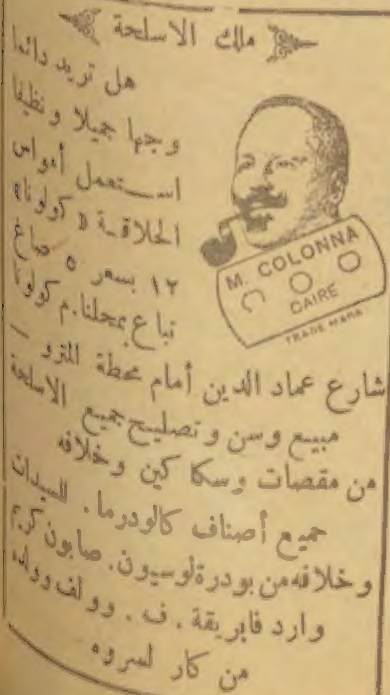 ملك الاسلحة
هل تريد دائما
وجها جميلا ونظيفا
استعمل أمواس
الحلاقة « كولونا »
١٢ بسعر ٥ صاغ
تباع بمحلنا . م كولونا
M. COLONNA
CAIRE
TRADE MARK
شارع عماد الدين أمام محطة المترو —
مبيع وسن وتصليح جميع الاسلحة
من مقصات وسكاكين وخلافه
جميع أصناف كالودرما . للسيدات
وخلافه من بودرة لوسيون . صابون كريم
وارد فابريقة . ف . وولف وولده
من كارلسروه